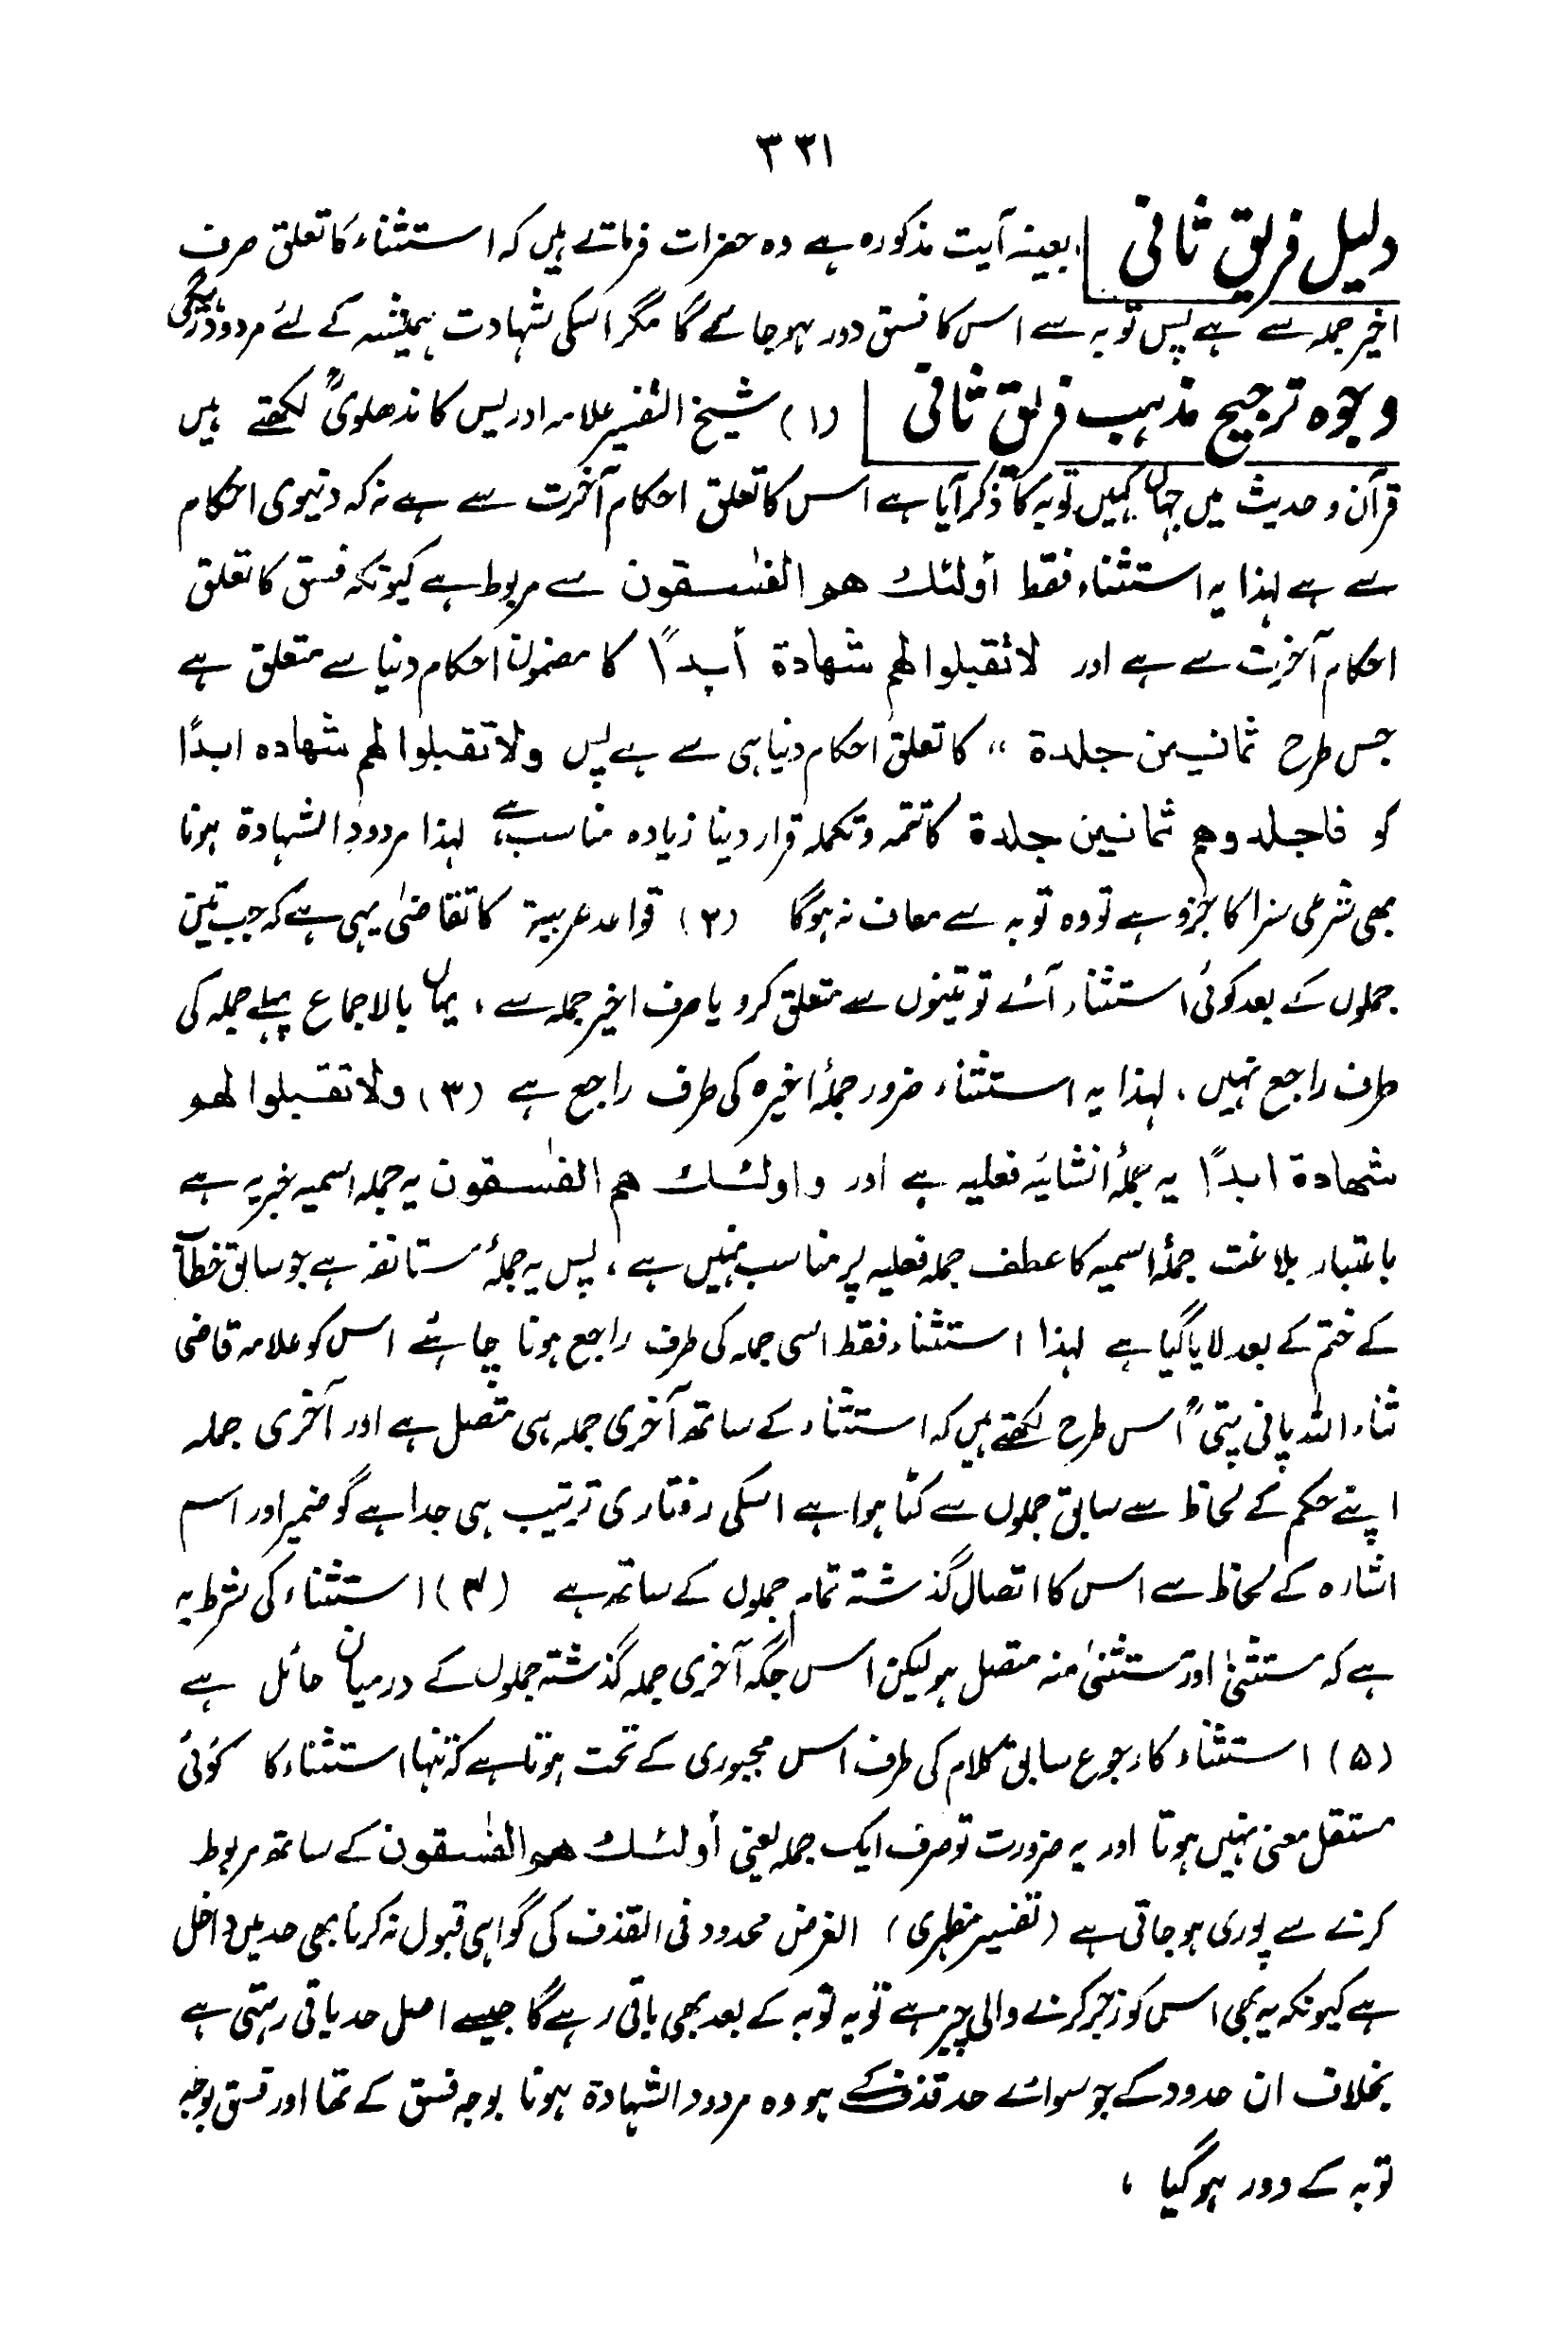 ۳۳۱
دلیل فریق ثانی بعینہ آیت مذکورہ ہے وہ حضرات فرماتے ہیں کہ استثناء کا تعلق صرف
اخیر جملہ سے ہے پس توبہ سے اس کا فسق دور ہوجائے گا مگر اسکی شہادت ہمیشہ کے لئے مردود رہیگی
وجوہ ترجیح مذہب فریق ثانی (۱) شیخ التفسیر علامہ ادریس کاندھلویؒ لکھتے ہیں
قرآن و حدیث میں جہاں کہیں توبہ کا ذکر آیا ہے اس کا تعلق احکام آخرت سے ہے نہ کہ دنیوی احکام
سے ہے لہذا یہ استثناء فقط أولئک هم الفٰسقون سے مربوط ہے کیونکہ فسق کا تعلق
احکام آخرت سے ہے اور لاتقبلوا لهم شهادة أبدًا کا مضمون احکام دنیا سے متعلق ہے
جس طرح ثمانین جلدة ،، کا تعلق احکام دنیا ہی سے ہے پس ولاتقبلوا لهم شهاده ابدًا
کو فاجلدوهم ثمانین جلدة کا تتمہ و تکملہ قرار دینا زیادہ مناسب ہے، لہذا مردود الشہادة ہونا
بھی شرعی سزا کا جزو ہے تو وہ توبہ سے معاف نہ ہوگا (۲) قواعد عربیة کا تقاضیٰ یہی ہے کہ جب تین
جملوں کے بعد کوئی استثناء آئے تو تینوں سے متعلق کرو یا صرف اخیر جملہ سے ، یہاں بالاجماع پہلے جملہ کی
طرف راجع نہیں ، لہذا یہ استثناء ضرور جملۂ اخیرہ کی طرف راجع ہے (۳) ولاتقبلوا لهم
شهادة ابدًا یہ جملۂ انشائیہ فعلیہ ہے اور و اولئک هم الفٰسقون یہ جملہ اسمیہ خبریہ ہے
باعتبار بلاغت جملۂ اسمیہ کا عطف جملہ فعلیہ پر مناسب نہیں ہے ، پس یہ جملۂ مستانفہ ہے جو سابق خطاب
کے ختم کے بعد لایا گیا ہے لہذا استثناء فقط اسی جملہ کی طرف راجع ہونا چاہئے اس کو علامہ قاضی
ثناء اللہ پانی پتیؒ اس طرح لکھتے ہیں کہ استثناء کے ساتھ آخری جملہ ہی متصل ہے اور آخری جملہ
اپنے حکم کے لحاظ سے سابق جملوں سے کٹا ہوا ہے اسکی رفتاری ترتیب ہی جدا ہے گو ضمیر اور اسم
اشارہ کے لحاظ سے اس کا اتصال گذشتہ تمام جملوں کے ساتھ ہے (۴) استثناء کی شرط یہ
ہے کہ مستثنیٰ اور مستثنیٰ منہ متصل ہو لیکن اس جگہ آخری جملہ گذشتہ جملوں کے درمیان حائل ہے
(۵) استثناء کا رجوع سابق کلام کی طرف اس مجبوری کے تحت ہوتا ہے کہ تنہا استثناء کا کوئی
مستقل معنی نہیں ہوتا اور یہ ضرورت تو صرف ایک جملہ یعنی أولئک هم الفٰسقون کے ساتھ مربوط
کرنے سے پوری ہوجاتی ہے (تفسیر مظہری) الغرض محدود فی القذف کی گواہی قبول نہ کرنا بھی حد میں داخل
ہے کیونکہ یہ بھی اس کو زجر کرنے والی چیز ہے تو یہ توبہ کے بعد بھی باقی رہے گا جیسے اصل حد باقی رہتی ہے
بخلاف ان حدود کے جو سوائے حد قذف کے ہو وہ مردود الشہادة ہونا بوجہ فسق کے تھا اور فسق بوجہ
توبہ کے دور ہوگیا ،